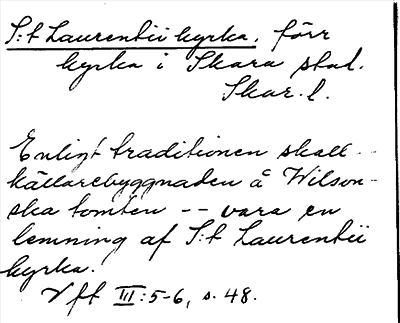 S:t Laurentii kyrka, förr
kyrka i Skara stad.
Skar. l.
Enligt traditionen skall --
källarebyggnaden å Wilson-
ska tomten -- vara en
lemning af S:t Laurentii
kyrka.
Vff III:5-6, s. 48.